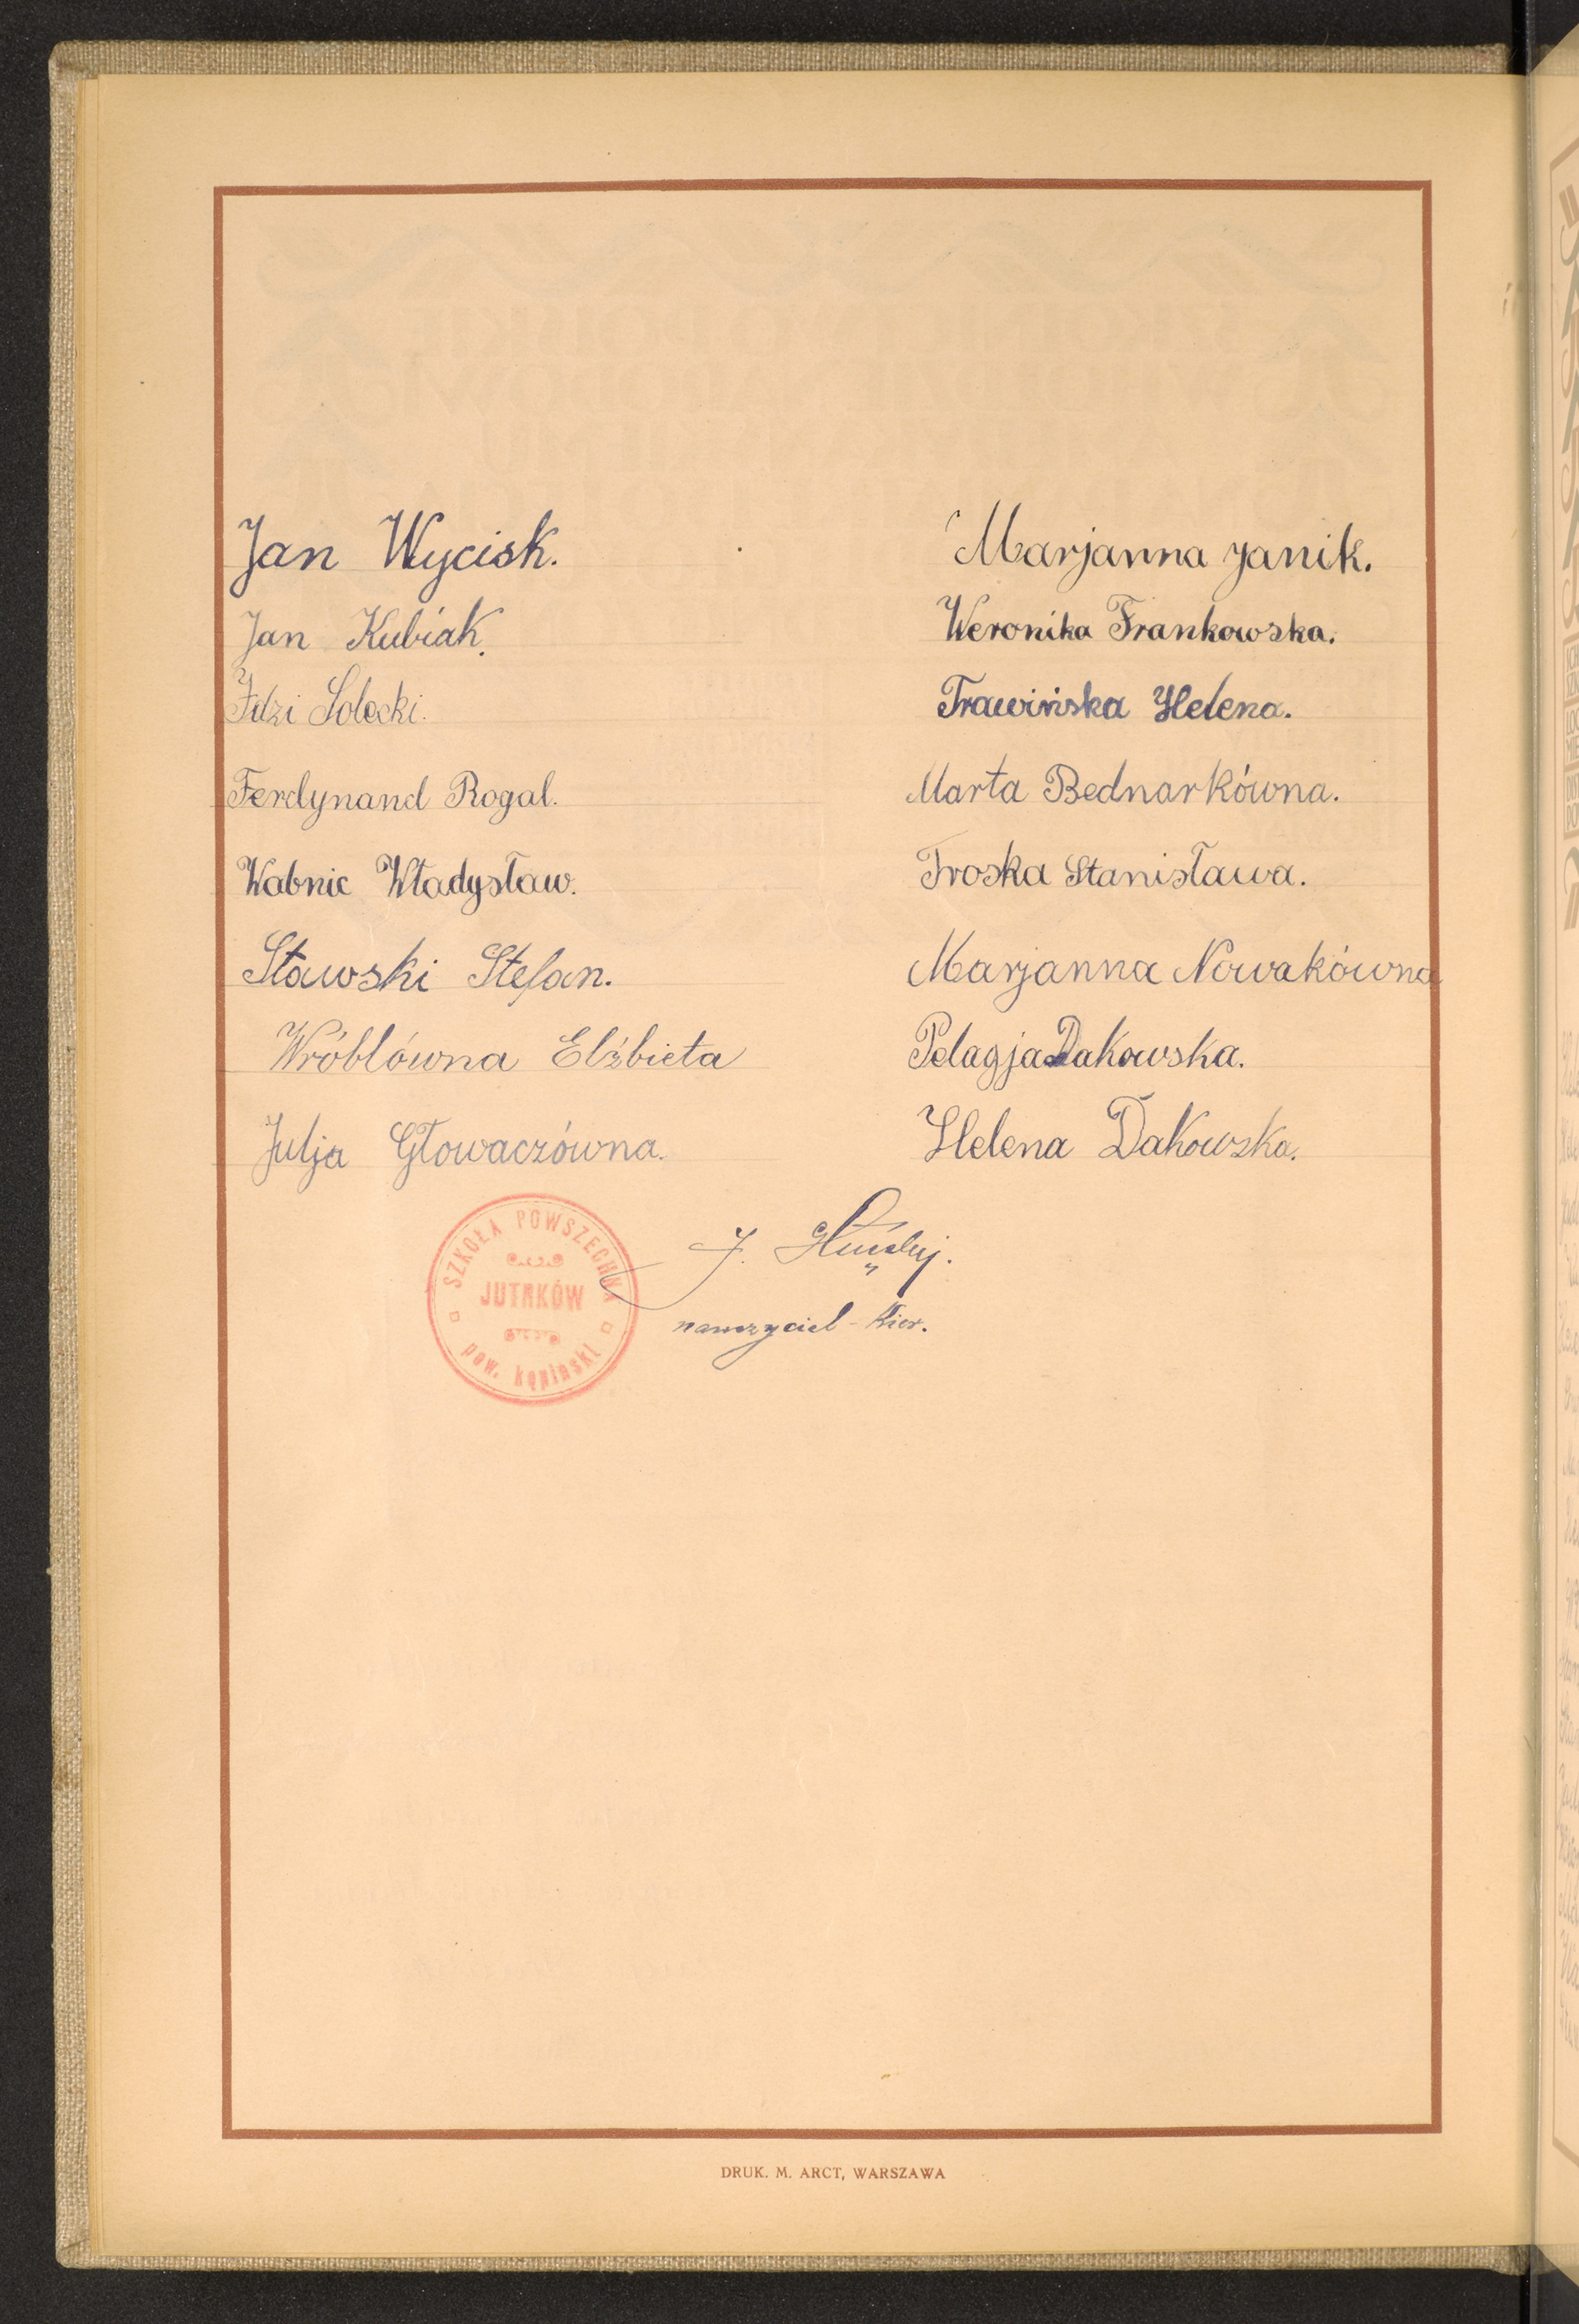 Jan Wycisk.
Jan Kubiak.
Idzi Solecki.
Ferdynand Rogal.
Wabnic Władysław.
Stawski Stefan.
Wróblówna Elżbieta
Julja Głowaczówna.
Marjanna Janik.
Weronika Frankowska.
Trawińska Helena.
Marta Bednarkówna.
Troska Stanisława.
Marjanna Nowakówna
Pelagja Dakowska.
Helena Dakowska.
SZKOŁA POWSZECHNA
JUTRKÓW
pow. kępiński
J.
nauczyciel - kier.
DRUK. M. ARCT, WARSZAWA